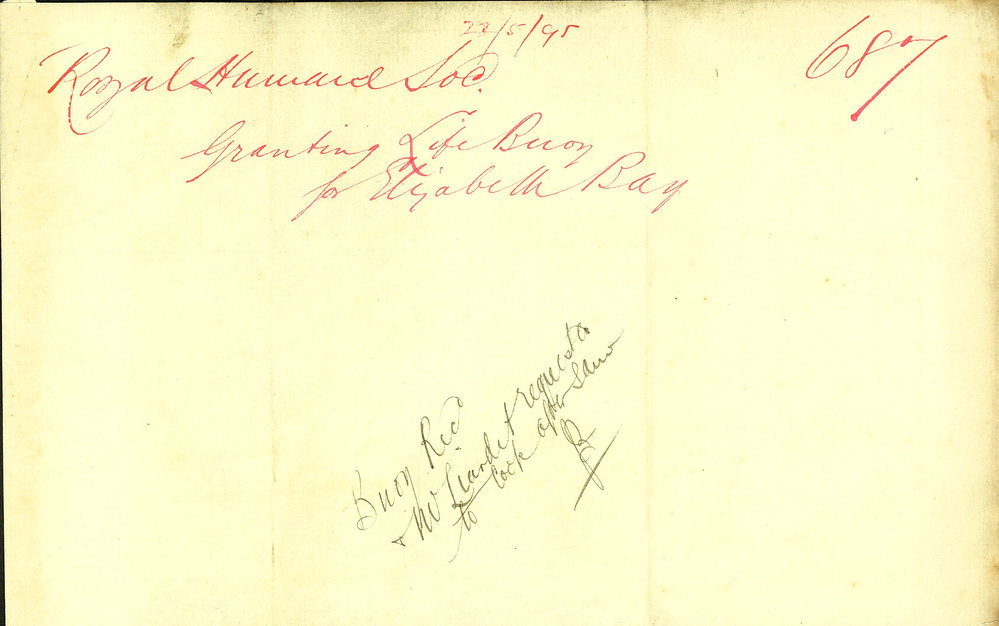 22/5/95
687
Royal Humane Socy.
Granting Life Buoy
for Elizabeth Bay
Buoy Recd
& Mr Liardet requested
to look after same